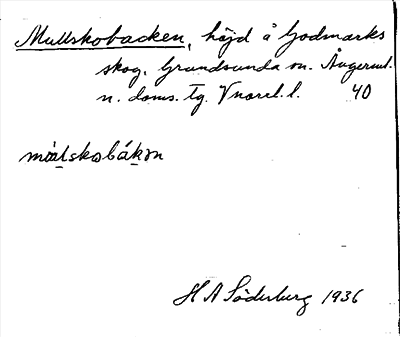 Mullskobacken, höjd å Godmarks
skog. Grundsunda sn. Ångerml.
n. doms. tg. Vnorrl. l. 40
mωlskobákən
H A Söderberg 1936